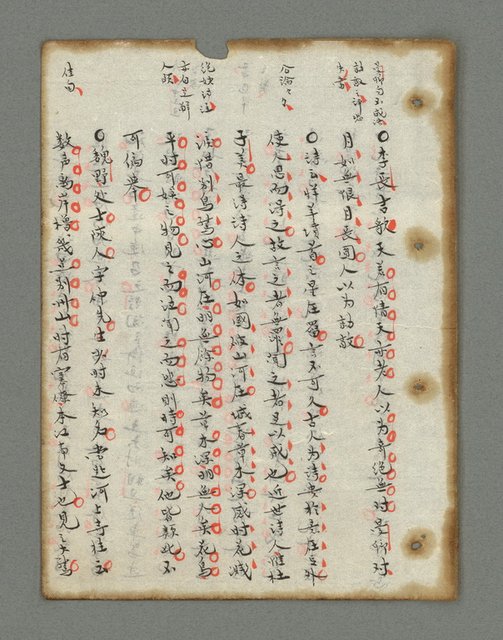 ○李長吉歌天若有情天亦老人以為奇絕無對曼卿對
月如無恨月長圓人以為勍敵
○詩云牂羊墳首三星在罶言不可久古人為詩貴於意在言外
使人思而得之故言之者無罪聞之者足以戒也近世詩人惟杜
子美最得詩人之体如國破山河在城春草木深感時花濺
淚恨別鳥驚心山河在明無餘物矣草木深明無人矣花鳥
平時可娛之物見之而泣聞之而悲則時可知矣他皆類此不
可徧舉
○魏野處士陝人字仲先少時未知名嘗題河上寺柱云
數声離岸櫓幾點別州山時有幕僚本江南文士也見之大驚
佳句